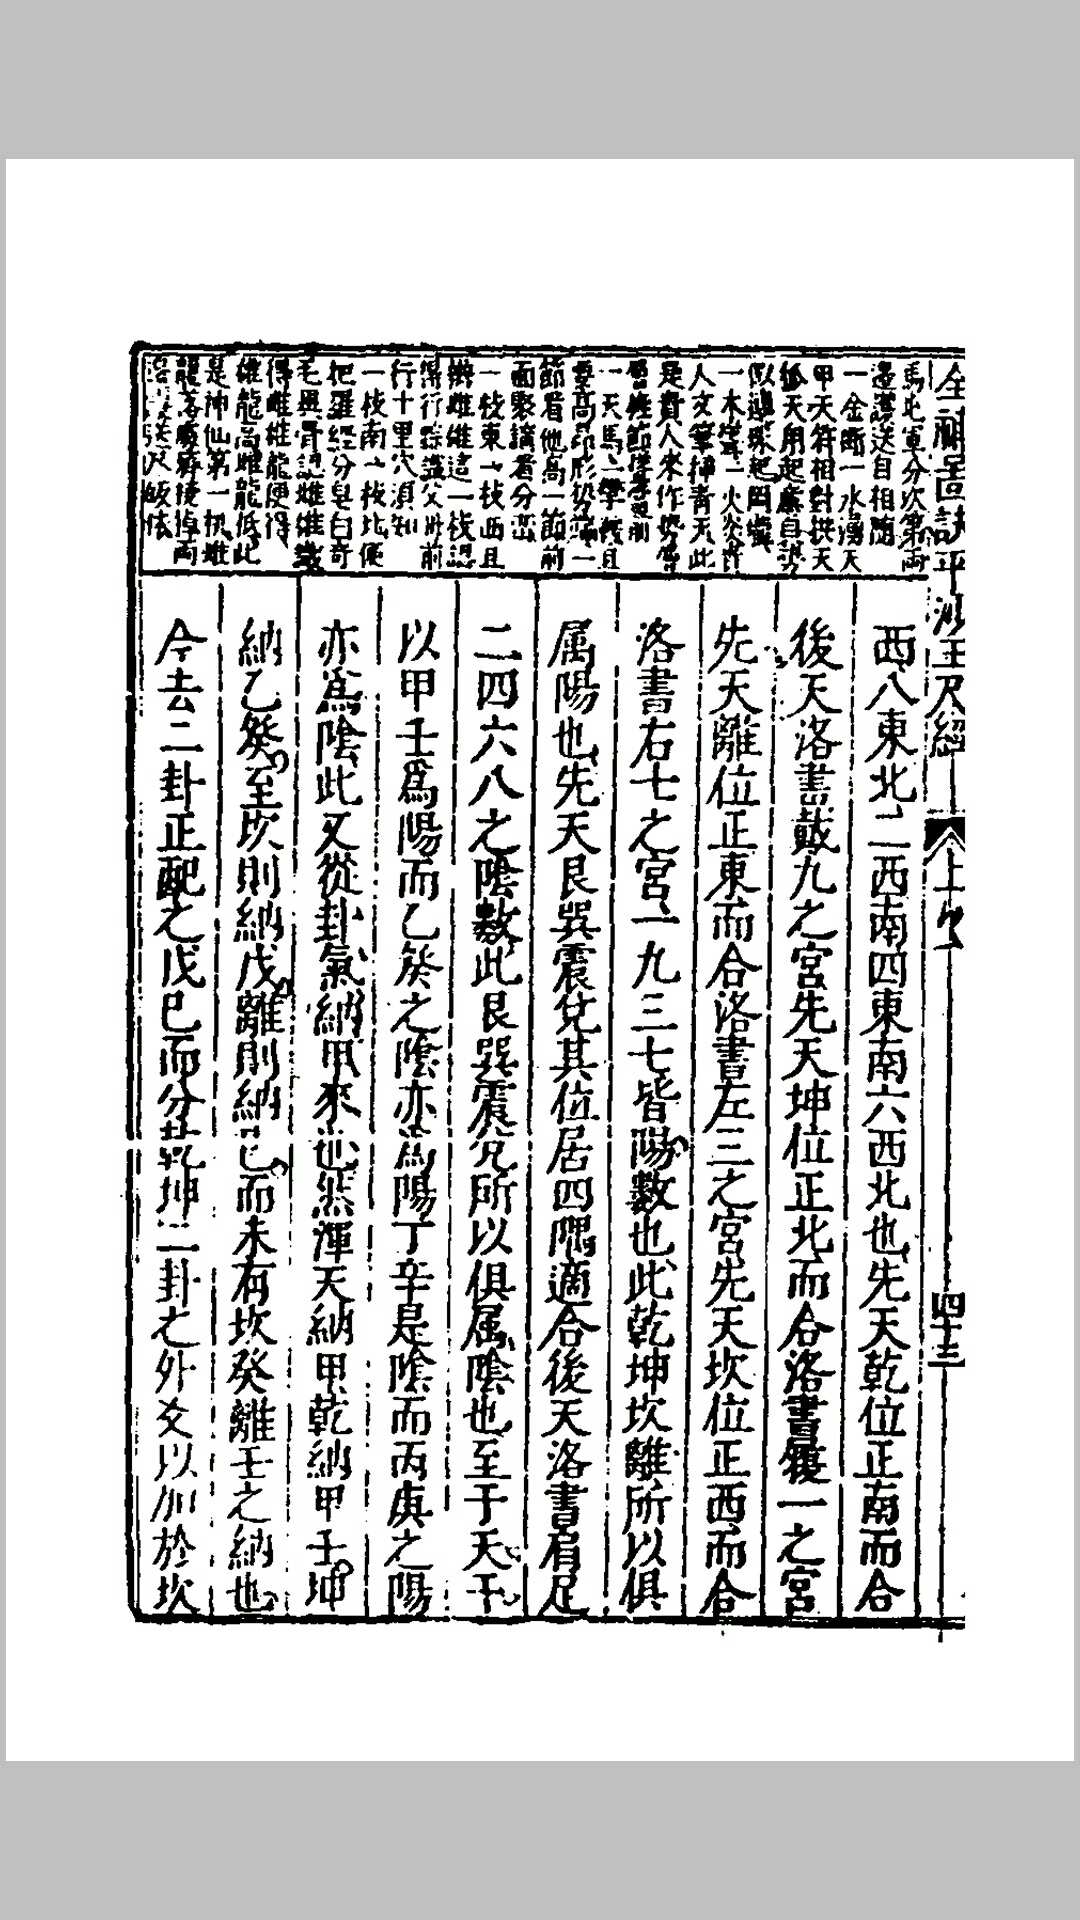 馬北軍分次第兩
邊護送自相隨
一金斷一水湧天
甲天符相對拱天
天角起
珠起
一木一火
人文筆揷青天此
是貴人來作
一天馬一
要高昻形
節看他高一節前
面聚講看分
一枝東一枝西且
辨雌雄這一枝認
得行踪識父母前
行十里穴須知
一枝南一枝北便
把羅經分皂白奇
毛異骨認雌雄
得雌雄龍便得
雄龍高雌龍低此
是神仙第一机雄
龍落後掉兩
西八東北二西南四東南六西北也先天乾位正南而合
後天洛書戴九之宮先天坤位正北而合洛書履一之宮
先天離位正東而合洛書左三之宮先天坎位正西而合
洛書右七之宮一九三七皆陽數也此乾坤坎離所以俱
属陽也先天艮巽震兌其位居四隅適合後天洛書肩足
二四六八之陰數此艮巽震兌所以俱属陰也至于天干
以甲壬爲陽而乙癸之陰亦爲陽丁辛是陰而丙庚之陽
亦爲陰此又從卦氣納甲來也然渾天納甲乾納甲壬坤
納乙癸至坎則納戊離則納己而未有坎癸離壬之納也
今去二卦正配之戊己而分乾坤二卦之外爻以加於坎
上久
四十三